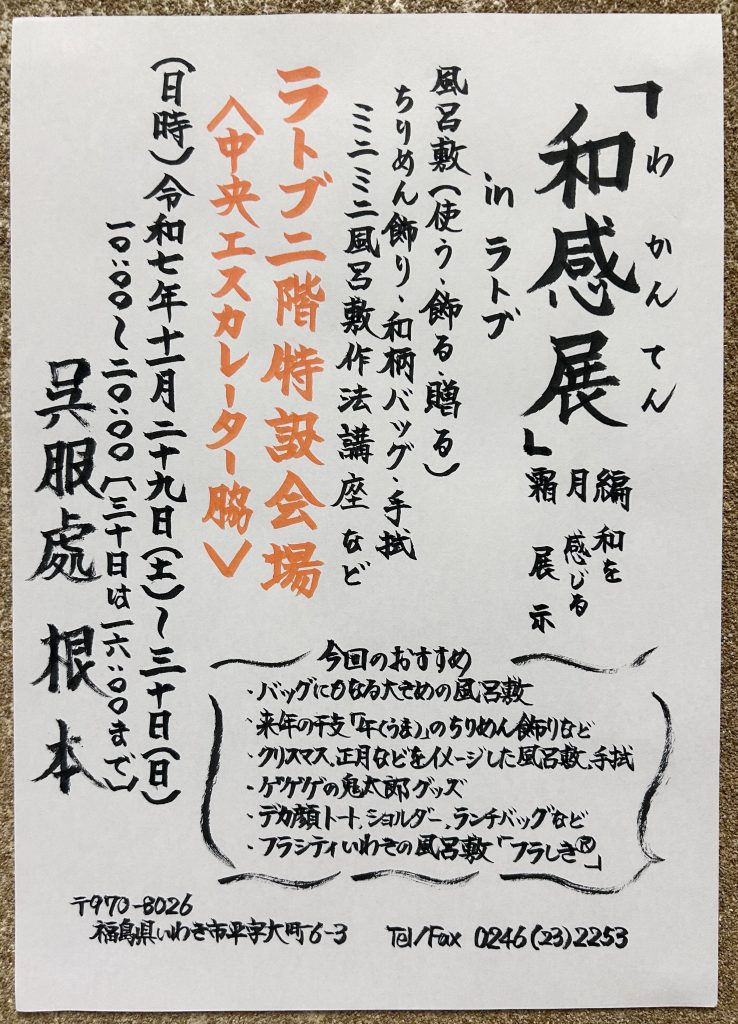 わかんてん
「和感展」
和を感じる展示
霜月編
in ラトブ
風呂敷(使う・飾る・贈る)
ちりめん飾り・和柄バッグ・手拭
ミニミニ風呂敷作法講座 など
ラトブ二階特設会場
〈中央エスカレーター脇〉
(日時)令和七年十一月二十九日(土)~三十日(日)
一〇:〇〇~二〇:〇〇(三十日は一六:〇〇まで)
呉服處 根本
今回のおすすめ
・バッグにもなる大きめの風呂敷
・来年の干支「午(うま)」のちりめん飾りなど
・クリスマス、正月などをイメージした風呂敷、手拭
・ゲゲゲの鬼太郎グッズ
・デカ顔トート、ショルダー、ランチバッグなど
・フラシティいわきの風呂敷「フラしき®」
〒970-8026
福島県いわき市平字大町6-3 Tel/Fax 0246(23)2253